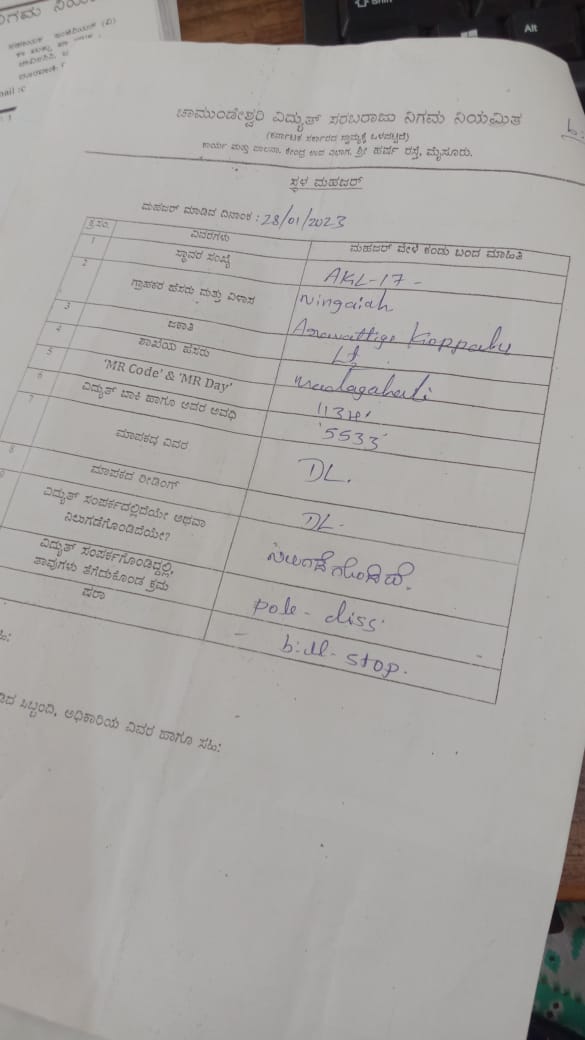 Shift
Alt
mail :c
ಚಾಮುಂಡೇಶ್ವರಿ ವಿದ್ಯುತ್ ಸರಬರಾಜು ನಿಗಮ ನಿಯಮಿತ
(ಕರ್ನಾಟಕ ಸರ್ಕಾರದ ಸ್ವಾಮ್ಯಕ್ಕೆ ಒಳಪಟ್ಟಿದೆ)
ಕಾರ್ಯ ಮತ್ತು ಪಾಲನಾ, ಕೇಂದ್ರ ಉಪ ವಿಭಾಗ, ಶ್ರೀ ಹರ್ಷ ರಸ್ತೆ, ಮೈಸೂರು.
ಸ್ಥಳ ಮಹಜರ್
ಮಹಜರ್ ಮಾಡಿದ ದಿನಾಂಕ : 28/01/2023
ಕ್ರ.ಸಂ. ವಿವರಗಳು ಮಹಜರ್ ವೇಳೆ ಕಂಡು ಬಂದ ಮಾಹಿತಿ
1 ಸ್ಥಾವರ ಸಂಖ್ಯೆ AKL-17 -
2 ಗ್ರಾಹಕರ ಹೆಸರು ಮತ್ತು ವಿಳಾಸ Ningaiah
Koppalu
3 ಜಕಾತಿ
4 ಶಾಖೆಯ ಹೆಸರು
5 'MR Code' & 'MR Day'
6 ವಿದ್ಯುತ್ ಬಾಕಿ ಹಾಗೂ ಅದರ ಅವಧಿ '5533'
7 ಮಾಪಕದ ವಿವರ DL.
8 ಮಾಪಕದ ರೀಡಿಂಗ್ DL-
ವಿದ್ಯುತ್ ಸಂಪರ್ಕದಲ್ಲಿದೆಯೇ ಅಥವಾ
ನಿಲುಗಡೆಗೊಂಡಿದೆಯೇ? ನಿಲುಗಡೆಗೊಂಡಿದೆ.
ವಿದ್ಯುತ್ ಸಂಪರ್ಕಗೊಂಡಿದ್ದಲ್ಲಿ,
ತಾವುಗಳು ತೆಗೆದುಕೊಂಡ ಕ್ರಮ pole - diss.
ಷರಾ - bill - stop.
ಸಿಬ್ಬಂದಿ, ಅಧಿಕಾರಿಯ ವಿವರ ಹಾಗೂ ಸಹಿ: